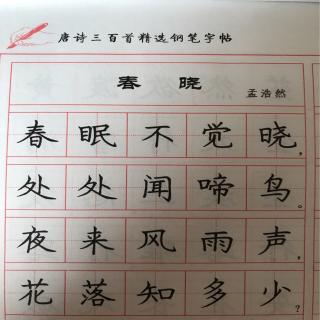 唐诗三百首精选钢笔字帖
春晓
孟浩然
春眠不觉晓，
处处闻啼鸟。
夜来风雨声，
花落知多少？